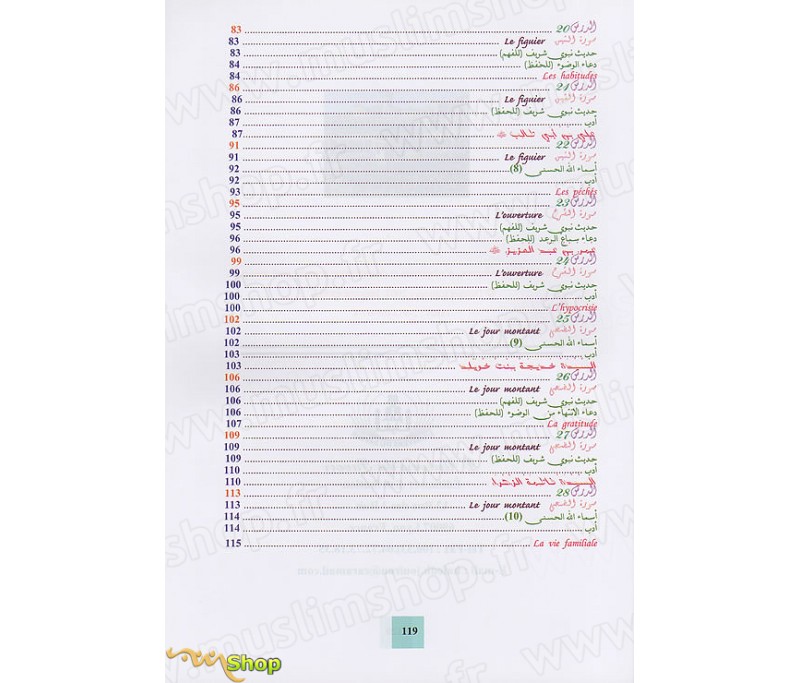 الدرس 20 ... 83
سورة التين Le figuier ... 83
حديث نبوي شريف (للفهم) ... 83
دعاء الوضوء (للحفظ) ... 84
Les habitudes ... 84
الدرس 21 ... 86
سورة التين Le figuier ... 86
حديث نبوي شريف (للحفظ) ... 86
أدب ... 87
علي بن أبي طالب ... 87
الدرس 22 ... 91
سورة التين Le figuier ... 91
أسماء الله الحسنى (8) ... 92
أدب ... 92
Les péchés ... 93
الدرس 23 ... 95
سورة الشرح L'ouverture ... 95
حديث نبوي شريف (للفهم) ... 95
دعاء سماع الرعد (للحفظ) ... 96
عمر بن عبد العزيز ... 96
الدرس 24 ... 99
سورة الشرح L'ouverture ... 99
حديث نبوي شريف (للحفظ) ... 100
أدب ... 100
L'hypocrisie ... 100
الدرس 25 ... 102
سورة الضحى Le jour montant ... 102
أسماء الله الحسنى (9) ... 102
أدب ... 103
السيدة خديجة بنت خويلد ... 103
الدرس 26 ... 106
سورة الضحى Le jour montant ... 106
حديث نبوي شريف (للفهم) ... 106
دعاء الانتهاء من الوضوء (للحفظ) ... 106
La gratitude ... 107
الدرس 27 ... 109
سورة الضحى Le jour montant ... 109
حديث نبوي شريف (للحفظ) ... 109
أدب ... 110
السيدة فاطمة الزهراء ... 110
الدرس 28 ... 113
سورة الضحى Le jour montant ... 113
أسماء الله الحسنى (10) ... 114
أدب ... 114
La vie familiale ... 115
119
Shop
www.muslimshop.fr